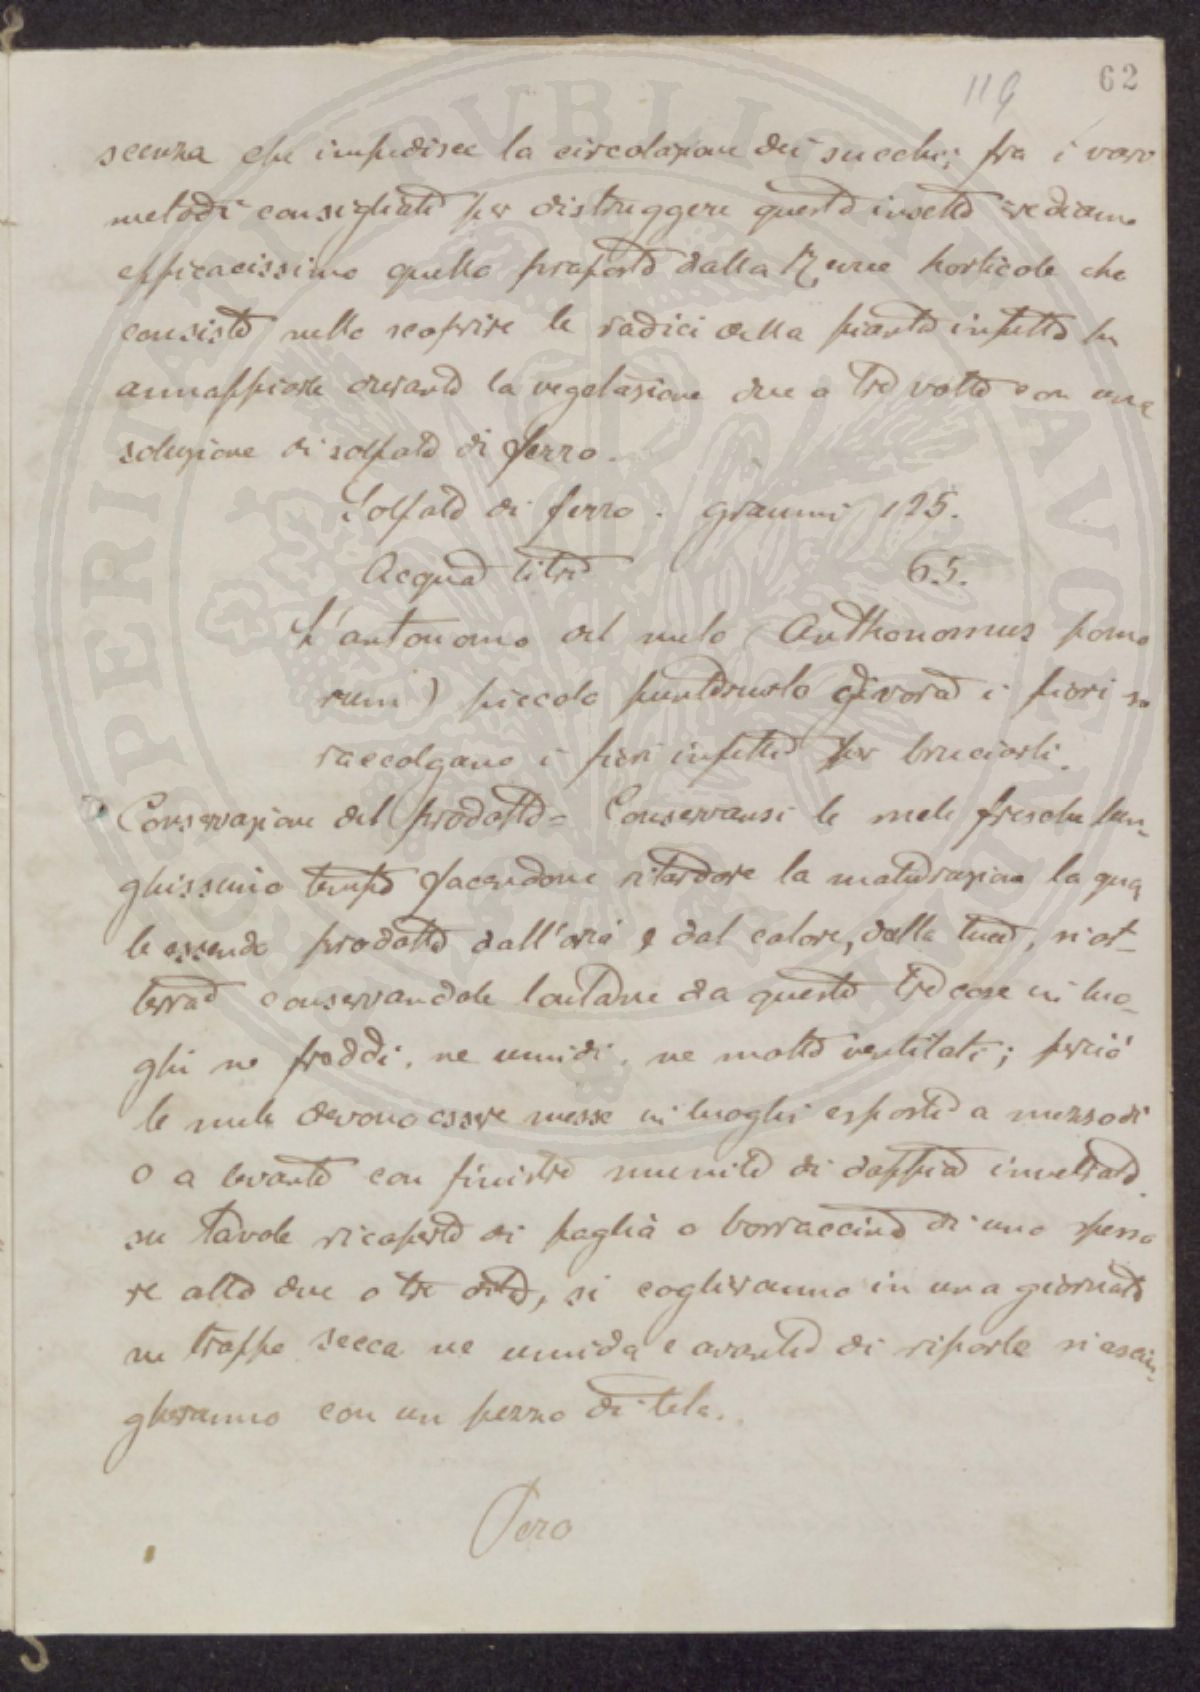 119 62
scenza che impedisce la circolazione dei succhi; fra i vari
metodi consigliati per distruggere questo insetto vediamo
efficacissimo quello proposto dalla Revue horticole che
consiste nello scoprire le radici della pianta infetta ed
annaffiarle durante la vegetazione due o tre volte con una
soluzione di solfato di ferro.
Solfato di ferro. grammi 125.
Acqua litri 65.
L'antonomo del melo (Anthonomus pomo
rum) piccolo punteruolo divora i fiori si
raccolgano i fiori infetti per bruciarli.
Conservazione del prodotto = Conservansi le mele fresche lun-
ghissimo tempo facendone ritardare la maturazione la qua
le essendo prodotta dall'aria e dal calore, dalla luce, si ot-
terrà conservandole lontane da queste tre cose in luo-
ghi ne freddi, ne umidi, ne molto ventilati; perciò
le mele devono essere messe in luoghi esposti a mezzodì
o a levante con finestre munite di doppia invetriata
su tavole ricoperte di paglia o borraccina di uno spesso
re alto due o tre dita, si coglieranno in una giornata
ne troppo secca ne umida e avanti di riporle si asciu-
gheranno con un pezzo di tela.
Pero